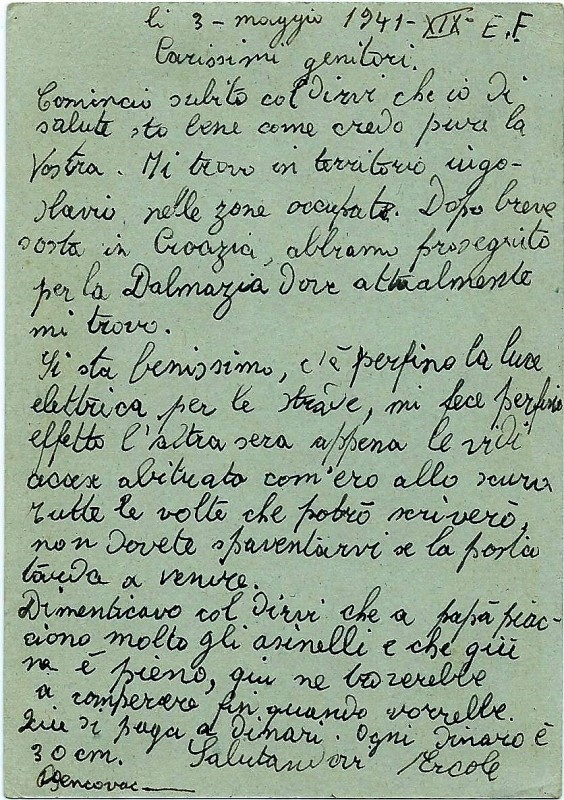 li 3 - maggio 1941 - XIX° E.F
Carissimi genitori.
Comincio subito col dirvi che io di
salute sto bene come credo pure la
Vostra. Mi trovo in territorio iugo-
slavio, nelle zone occupate. Dopo breve
sosta in Croazia, abbiamo proseguito
per la Dalmazia dove attualmente
mi trovo.
Si sta benissimo, c'è perfino la luce
elettrica per le strade, mi fece perfino
effetto l'altra sera appena le vidi
accese abituato com'ero allo scuro
tutte le volte che potrò scriverò,
non dovete spaventarvi se la posta
tarda a venire.
Dimenticavo col dirvi che a papà piac-
ciono molto gli asinelli e che qui
ne è pieno, qui ne troverebbe
a comperare fin quando vorrebbe.
Qui si paga a dinari. Ogni dinaro è
30 cm. Salutandovi Ercole